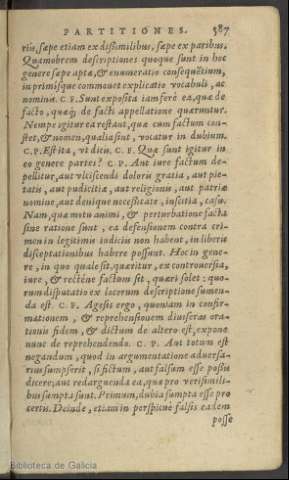 PARTITIONES. 587
rin, sæpe etiam ex dissimilibus, sæpe ex paribus.
Quamobrem descriptiones quoque sunt in hoc
genere sæpe aptæ, & enumeratio consequētium,
in primisque commouet explicatio vocabuli, ac
nominis. C.F. Sunt exposita iam ferè ea, quæ de
facto, quæq; de facti appellatione quæruntur.
Nempe igitur ea restāt, quæ cum factum con-
stet, & nomen, qualia sint, vocatur in dubium.
C.P. Est ita, vt dicis. C.F. Quæ sunt igitur in
eo genere partes? C.P. Aut iure factum de-
pellitur, aut vlciscendi doloris gratia, aut pie-
tatis, aut pudicitiæ, aut religionis, aut patriæ
nomine, aut denique necessitate, inscitia, casu.
Nam, quæ motu animi, & perturbatione facta
sine ratione sunt, ea defensionem contra cri-
men in legitimis iudiciis non habent, in liberis
disceptationibus habere possunt. Hoc in gene-
re, in quo quale sit, quæritur, ex controuersia,
iure, & rectène factum sit, quæri solet: quo-
rum disputatio ex locorum descriptione sumen-
da est. C.F. Agesis ergo, quoniam in confir-
mationem, & reprehensionem diuiseras ora-
tionis fidem, & dictum de altero est, expone
nunc de reprehendendo. C.P. Aut totum est
negandum, quod in argumentatione aduersa-
rius sumpserit, si fictum, aut falsum esse possis
dicere; aut redarguenda ea, quæ pro verisimili-
bus sumpta sunt. Primum, dubia sumpta esse pro
certis. Deinde, etiam in perspicuè falsis eadem
posse
Biblioteca de Galicia